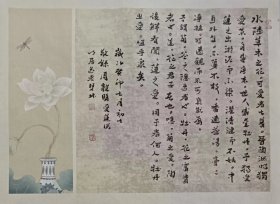 水陸草木之花可愛者甚蕃晉陶淵明獨
愛菊自李唐來世人甚愛牡丹予獨愛
蓮之出淤泥而不染濯清漣而不妖中
通外直不蔓不枝香遠益清亭亭
淨植可遠觀而不可褻玩焉予
謂菊花之隱逸者也牡丹花之富貴
者也蓮花之君子者也噫菊之愛陶
後鮮有聞蓮之愛同予者何人牡丹
之愛宜乎衆矣
歲次癸卯七月初七
敬錄周敦頤愛蓮說